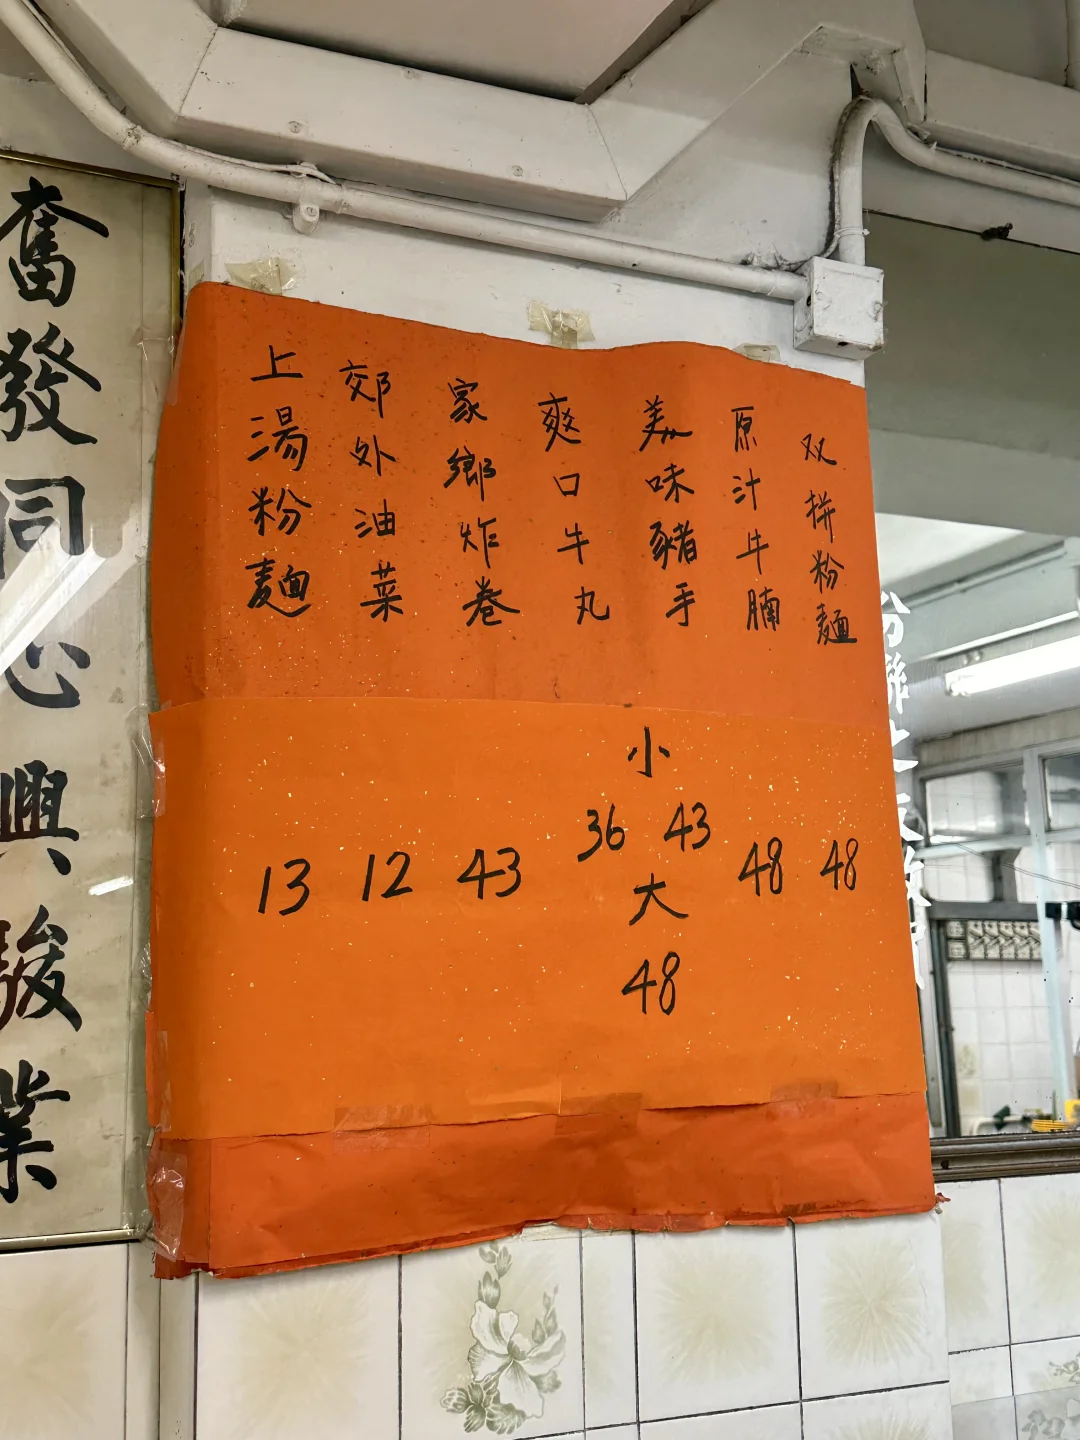 双拼粉麵
原汁牛腩
美味豬手
爽口牛丸
家鄉炸卷
郊外油菜
上湯粉麵
小
13 12 43 36 43 48 48
大
48
奮發同心興駿業